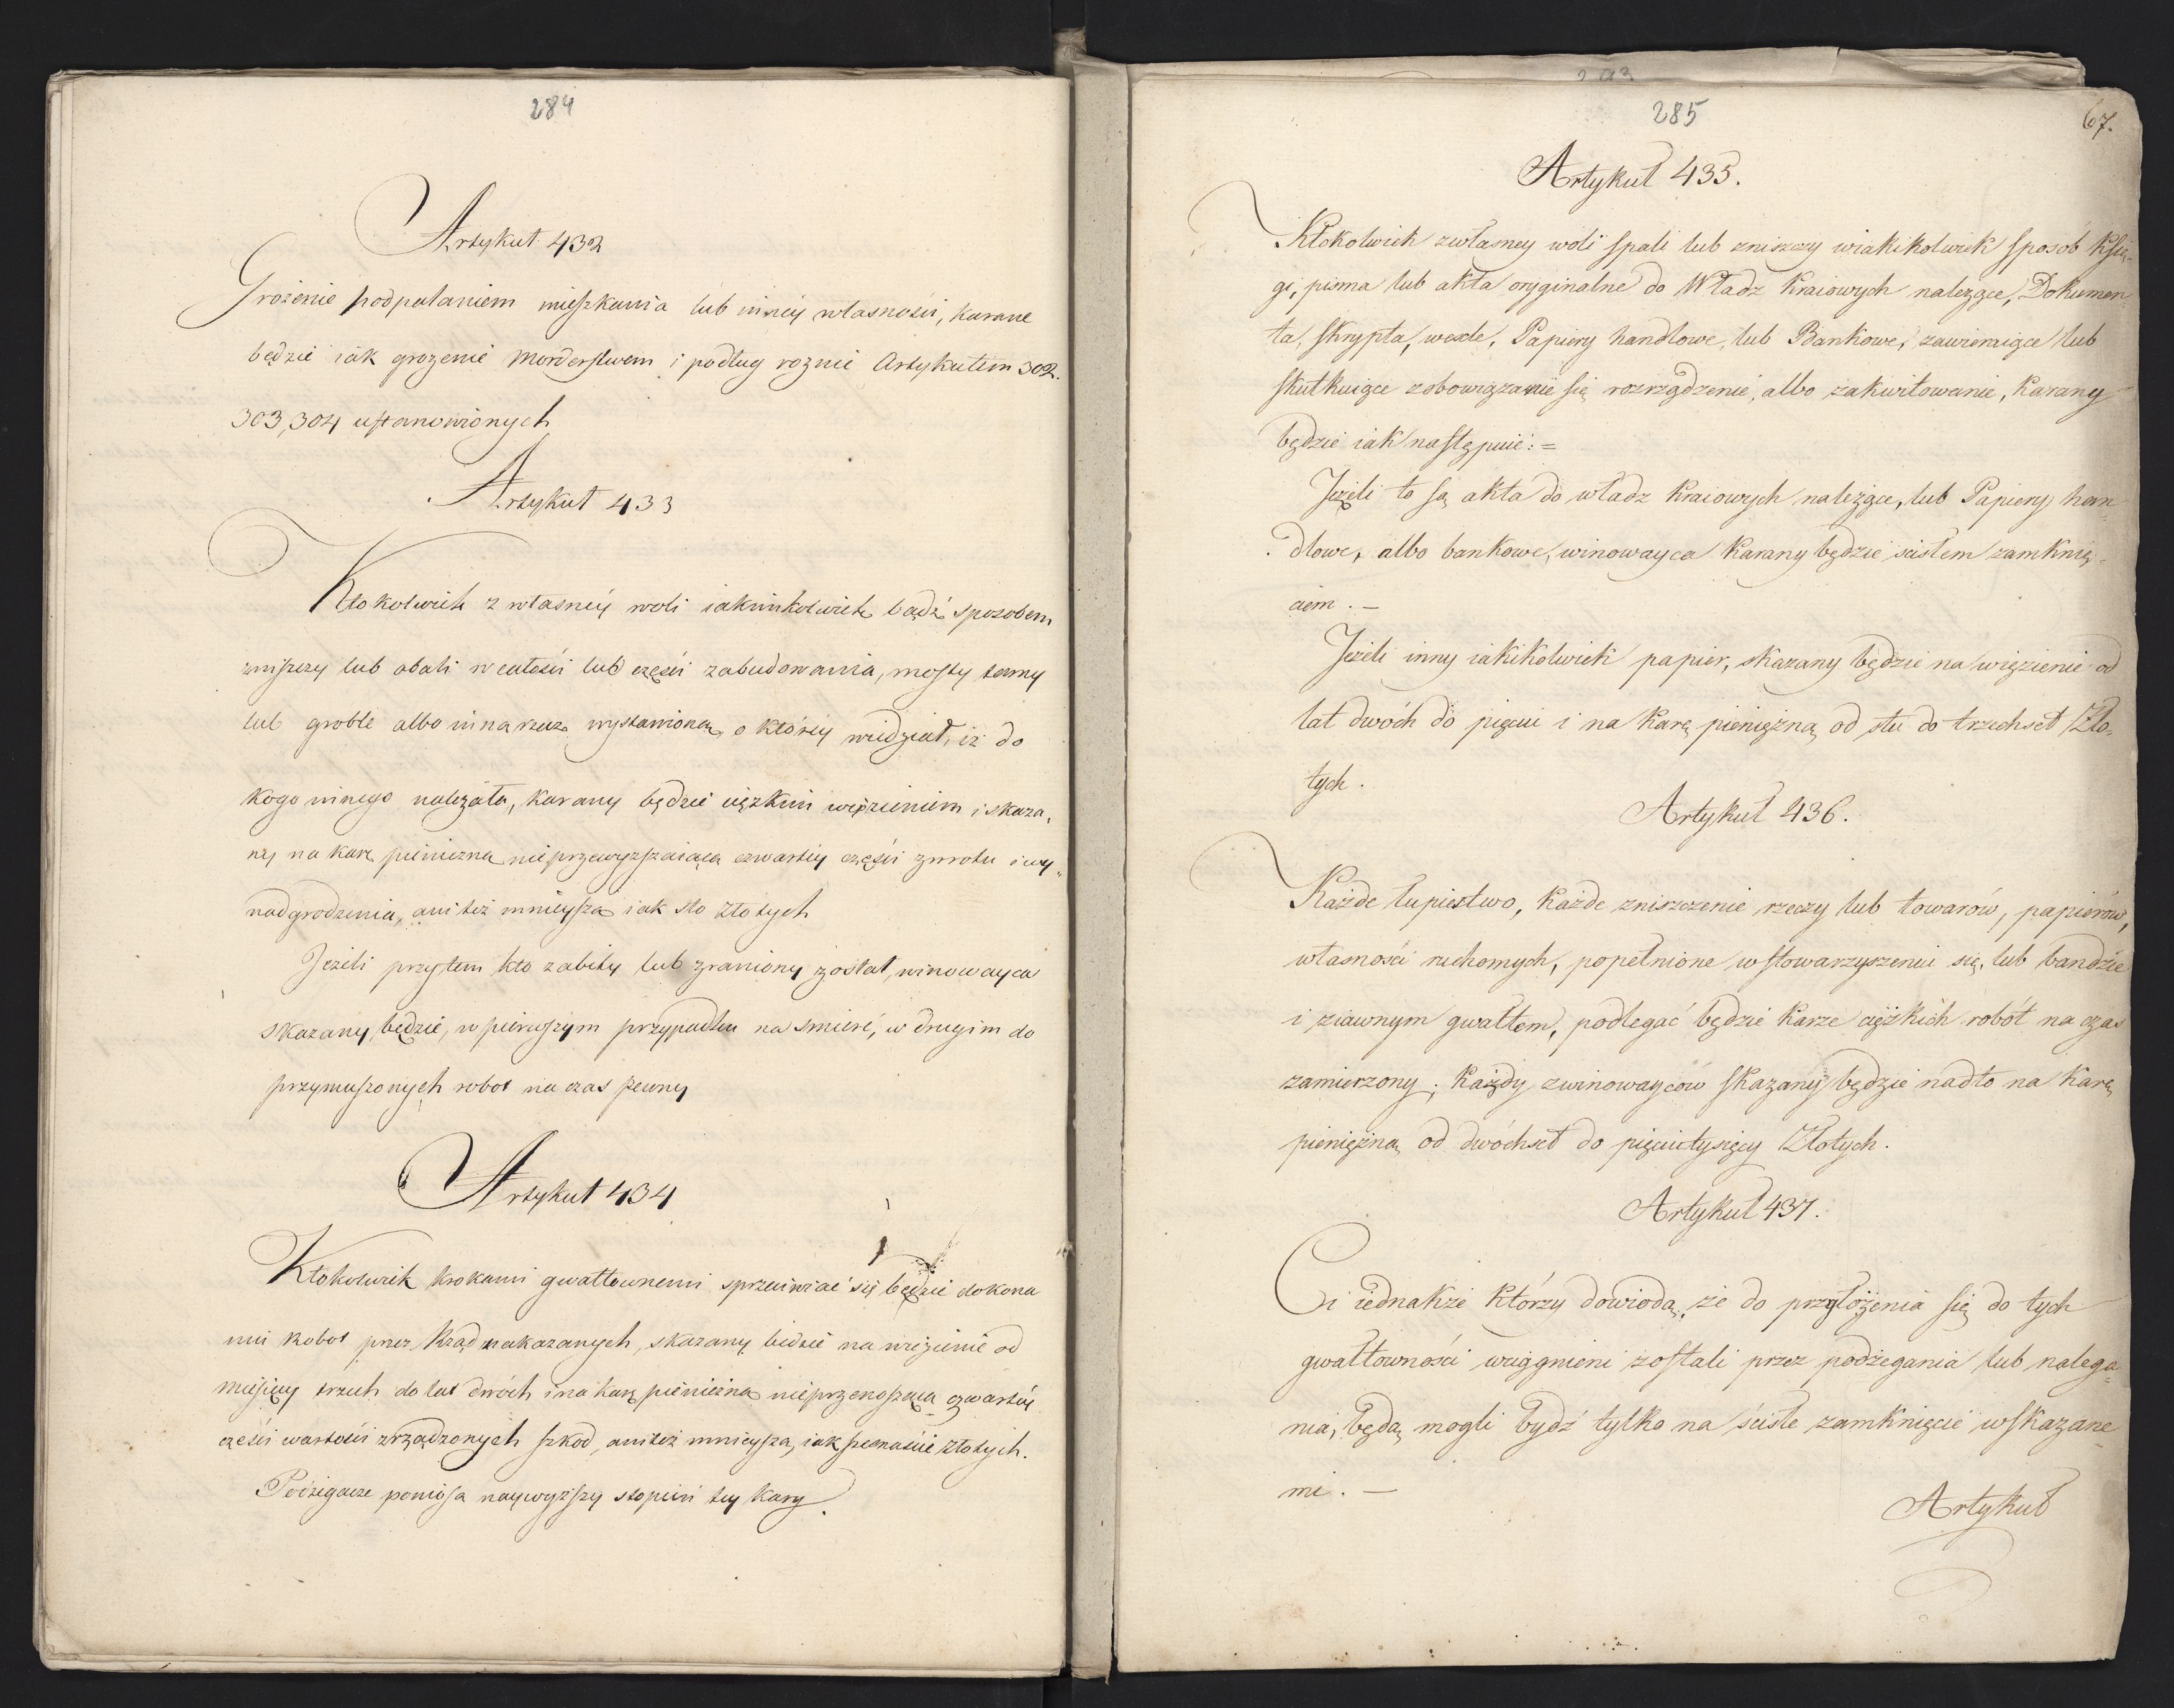 284
Artykuł 432
Grożenie podpalaniem mieszkania lub inney własności, karane
będzie iak grożenie morderstwem i podług roznic Artykułem 302.
303, 304 ustanowionych
Artykuł 433
Ktokolwiek z własney woli iakimkolwiek bądź sposobem
zniszczy lub obali w całości lub części zabudowania, mosty tamy
lub groble albo inną rzecz wystawioną, o którey wiedział, iż do
kogo innego należała, karany będzie cięzkim więzieniem i skaza„
ny na karę pieniezną nieprzewyższaiącą czwartey części zwrotu i wy„
nadgrodzenia, ani też mnieyszą iak sto złotych
Jeżeli przytem kto zabity lub zraniony został, winowayca
skazany będzie, w pierwszym przypadku na smierć, w drugim do
przymuszonych robot na czas pewny
Artykuł 434
Ktokolwiek krokami gwałtownemi sprzeciwiać się będzie dokona
niu Robot przez Rząd nakazanych, skazany będzie na więzienie od
miesięcy trzech do lat dwóch i na karę pieniezną nieprzenoszącą czwartéy
części wartości zrządzonych szkod, ani też mnieyszą, iak piętnaście złotych.
Podżegacze poniosą naywyższy stopień tey kary.
285
67.
Artykuł 435.
Ktokolwiek zwłasney woli spali lub zniszczy wiakikolwiek sposób Księ-
gi, pisma lub akta oryginalne do Władz Kraiowych należące, Dokumen-
ta, skrypta, wexle, Papiery handlowe, lub Bankowe, zawieraiące lub
skutkuiące zobowiązanie się rozrządzenie, albo zakwitowanie, Karany
będzie iak następuie: =
Jeżeli to są akta do władz Kraiowych należące, lub Papiery han-
dlowe, albo bankowe, winowayca Karany będzie scisłem zamknię-
ciem. —
Jeżeli inny iakikolwiek papier, skazany będzie na więzienie od
lat dwóch do pięciu i na Karę pieniężną od stu do trzechset Zło-
tych.
Artykuł 436.
Każde łupiestwo, Każde zniszczenie rzeczy lub towarów, papierów,
własności ruchomych, popełnione w stowarzyszeniu się, lub bandzie
i ziawnym gwałtem, podlegać będzie Karze ciężkich robót na czas
zamierzony; Każdy zwinowayców skazany będzie nadto na Karę
pieniężną od dwóchset do pięciutysięcy Złotych.
Artykuł 437.
Ci iednakże którzy dowiodą, że do przyłożenia się do tych
gwałtowności wciągnieni zostali przez podżegania lub nalega-
nia, będą mogli bydź tylko na ścisłe zamknięcie wskazane-
mi. —
Artykuł